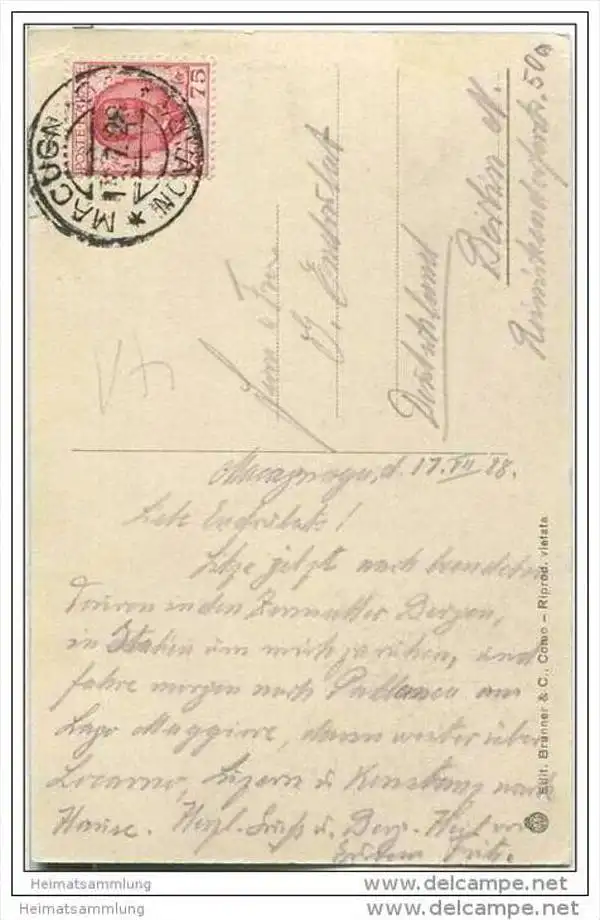 POSTE ITALIANE
75
MACUGN
NOVARA
Familie
Endrulat
Deutschland
Berlin N.
Reinickendorferstr. 50a
Macugnaga, d. 17. VII 28.
Lb. Endrulats!
Sitze jetzt nach beendeten
Touren in den Zermatter Bergen,
in Italien um mich zu ruhen, und
fahre morgen nach Pallanza am
Lago Maggiore, dann weiter über
Locarno, Luzern u Konstanz nach
Hause. Herzl. Gruß u. Berg-Heil von
Fritz.
Edit. Brunner & C., Como – Riprod. vietata
Heimatsammlung
Heimatsammlung
delcampe.net
delcampe.net